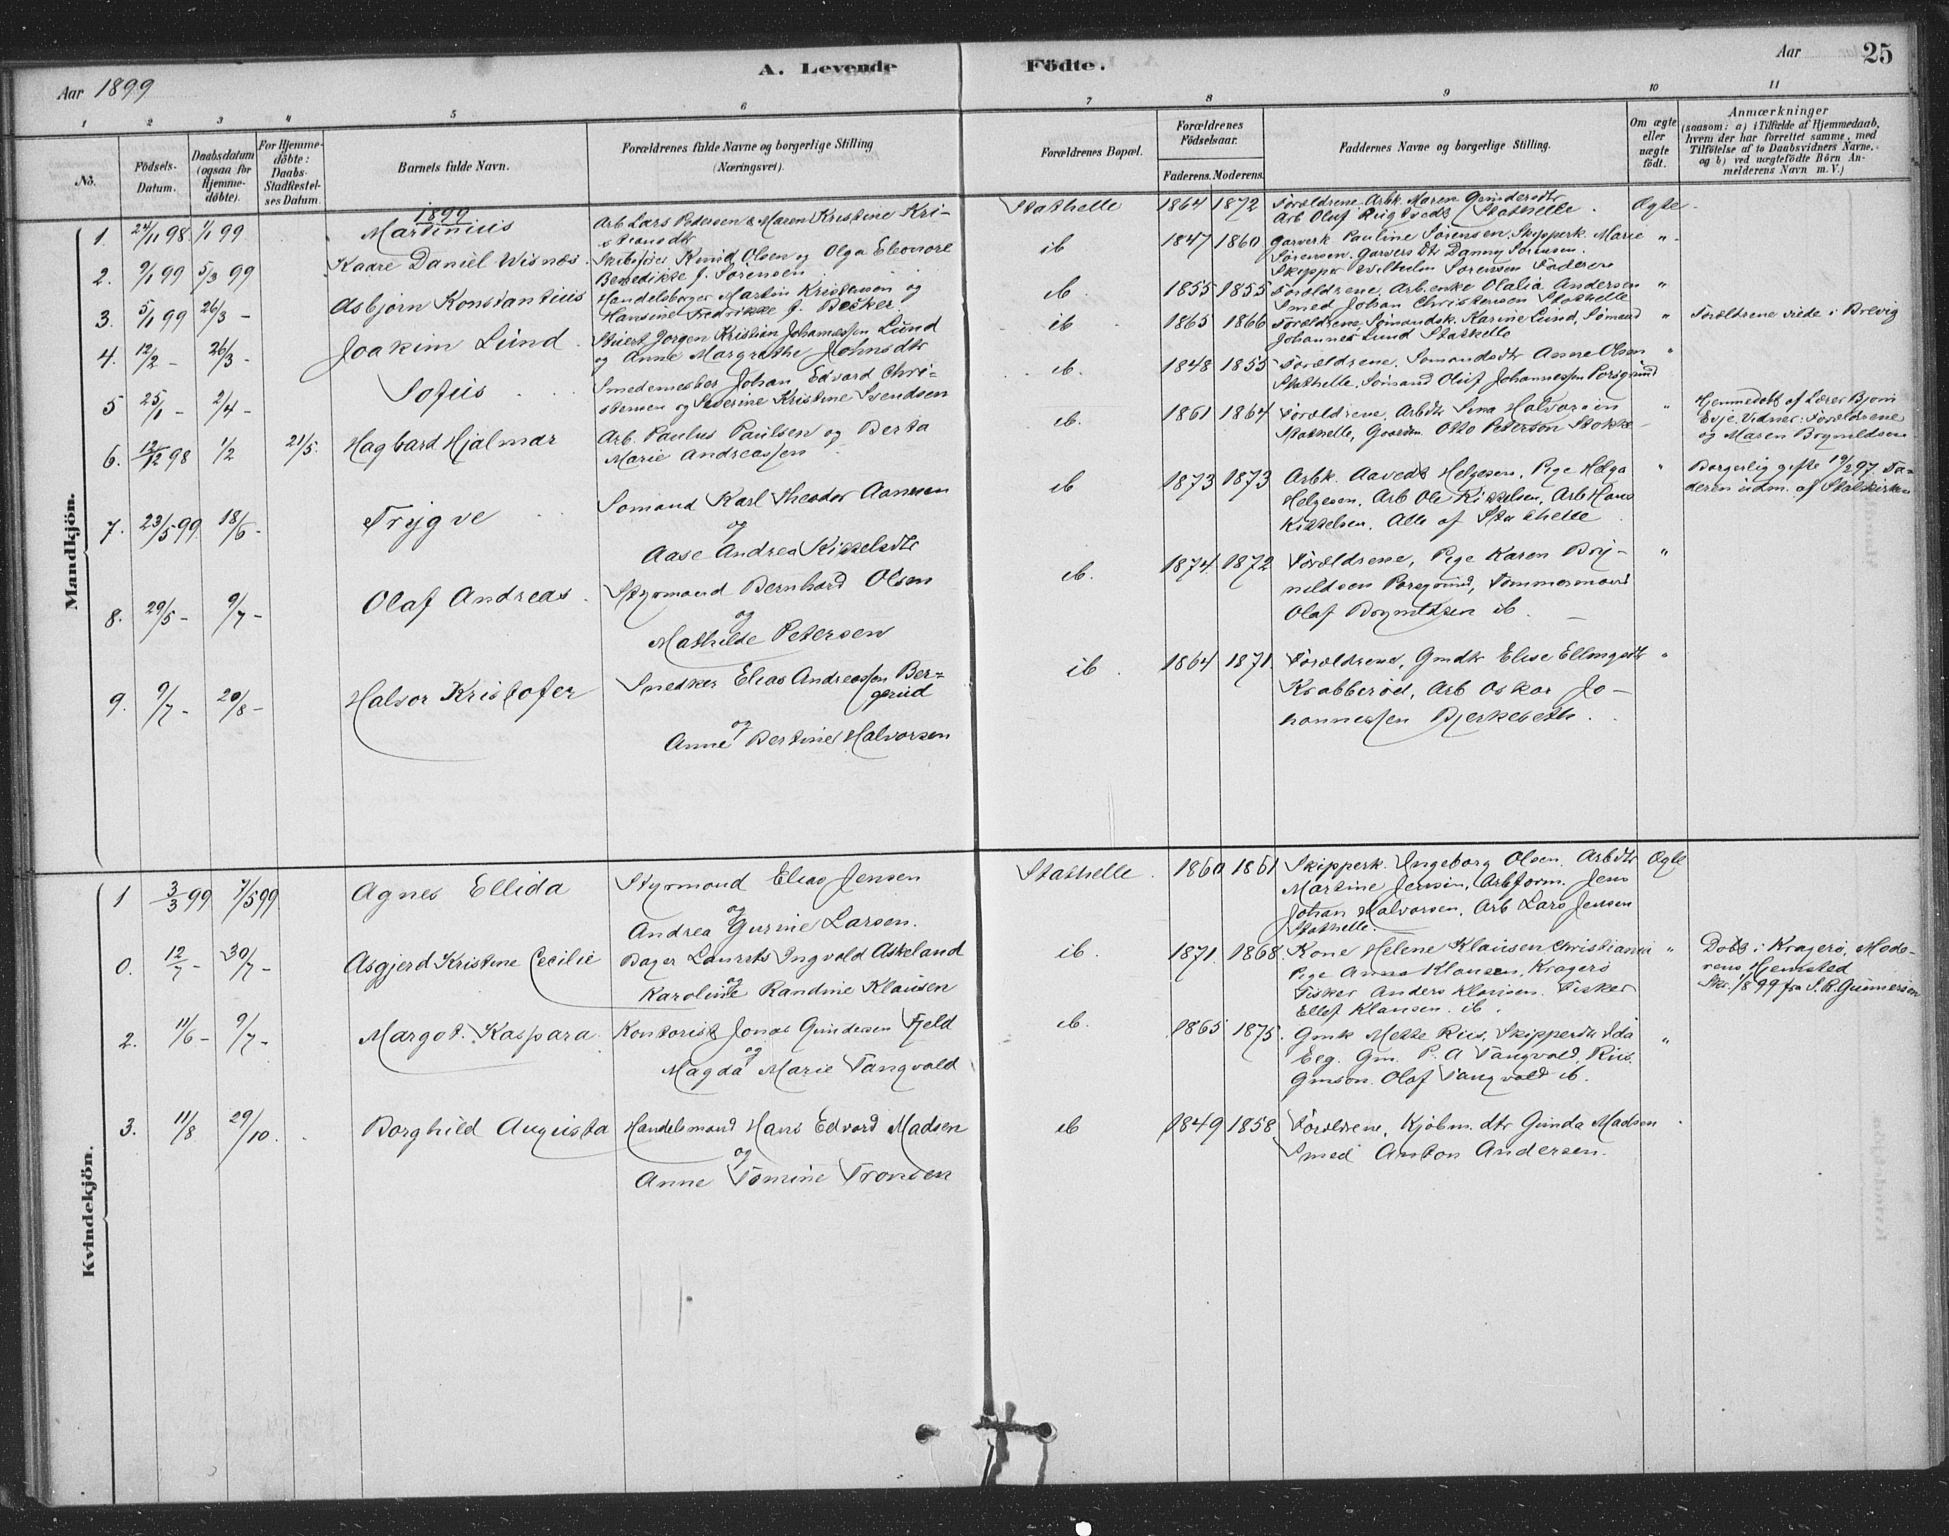 Aar 1899
A. Levende Födte.
Aar 25
1 2 3 4 5 6 7 8 9 10 11
No.
Födsels-Datum.
Daabsdatum (ogsaa for Hjemme-döbte).
For Hjemme-döbte: Daabs-Stadfæstel-ses Datum.
Barnets fulde Navn.
Forældrenes fulde Navne og borgerlige Stilling (Næringsvei).
Forældrenes Bopæl.
Forældrenes Födselsaar.
Faderens. Moderens.
Faddernes Navne og borgerlige Stilling.
Om ægte eller uægte födt.
Anmærkninger
(saasom: a) i Tilfælde af Hjemmedaab, hvem der har forrettet samme, med Tilföielse af to Daabsvidners Navne, og b) ved uægtefödte Börn An-melderens Navn m. V.)
Mandkjön.
1899
1. 24/11 98 1/1 99 Martinius
Arb Lars Petersen & Maren Kristine Kri-
stiansdtr
Stathelle 1864 1872
Forældrene. Arbk. Maren Gundersdtr
Arb Olaf Stathelle. Ægte.
2. 9/1 99 5/3 99 Kaare Daniel Wisnæs
Skibsfører Knud Olsen og Olga Eleonore
Benedikte J. Sørensen
ib 1847 1860
Garverk Pauline Sørensen. Skipperk. Marie
Sørensen. Garvers Dtr Danny Sørensen.
Skipper Wilhelm Sørensen Faderen "
3. 5/1 99 26/3 - Asbjørn Konstantius
Handelsborger Martin Kristensen og
Hansine Fredrikke J. Becker.
ib. 1855 1855
Forældrene. Arb.enke Olalia Andersen
Smed Johan Christensen Stathelle "
4. 12/2 - 26/3 - Joakim Lund
Stuert Jørgen Kristian Johannessen Lund
og Anne Margrethe Johnsdtr
ib 1865 1866
Forældrene, Sømandsk. Karine Lund, Sømand
Johannes Lund Stathelle "
Forældrene viede i Brevig
5 25/1 - 2/4 - Sofus
Smedemester Johan Edvard Chri-
stensen og Severine Kristine Svendsen
ib. 1848 1855
Forældrene. Sømandsdtr Anne Olsen
Stathelle, Sømand Oluf Johannessen Porsgrund "
6. 12/12 98 1/2 21/5. Hagbard Hjalmar
Arb. Paulus Paulsen og Berta
Marie Andreassen
ib. 1861 1864
Forældrene, Arbdtr Lina Halvorsen
Stathelle, Otto Peterson Stokke "
Hjemmedøbt af Lærer Bjørn
Evje. Vidner: Forældrene
og Maren Brynildsen
7. 23/5 99 18/6 - Trygve
Sømand Karl Theodor Aanesen
og
Aase Andrea Kittelsdtr
ib 1873 1873
Arbk. Helgesen, Pige Helga
Helgesen, Arb Ole Kittelsen, Arb Hans
Kittelsen. Alle af Stathelle "
Borgerlig gifte 19/2 97. Fa-
deren udm. af Statskirken
8. 29/5 - 9/7 - Olaf Andreas
Styrmand Bernhard Olsen
og
Mathilde Petersen
ib. 1874. 1872
Forældrene, Pige Karen Bry-
nildsen Porsgrund, Tømmermand
Olaf Brynildsen ib. "
9. 9/7 - 20/8 - Halvor Kristofer
Snedker Elias Andreassen Ber-
gerud
og
Anne Bertine Halvorsen
ib 1864 1871
Forældrene, Gmdtr Elise Ellingsdtr
Krabberød, Arb Oskar Jo-
hannessen Bjerkebeth. "
Kvindekjön.
1 3/3 99 7/5 99 Agnes Ellida
Styrmand Elias Jensen
og
Andrea Gurine Larsen.
Stathelle. 1860 1861
Skipperk. Ingeborg Olsen. Arbdtr
Martine Jensen, Arbform. Jens
Johan Halvorsen, Arb Lars Jensen
Stathelle. Ægte
0. 12/7 - 30/7 - Asgjerd Kristine Cecilie
Bager Laurets Ingvald Askeland
og
Karoline Randine Klausen
ib. 1871 1868.
Kone Helene Klausen Christiania
Pige Anna Klausen, Kragerø
Fisker Anders Klausen. Fisker
Ellef Klausen. ib. "
Døbt i Kragerø, Mode-
rens Hjemsted
Skr. 1/8 99 fra S.P. Gunnersen
2. 11/6 - 9/7 - Margot Kaspara
Kontorist Jonas Gundersen Fjeld
og
Magda Marie Tangvald
ib. 1865 1875.
Gmk Mette Riis, Skipperdtr Ida
Eeg. Gm. P. A Tangvald, Riis.
Gmsøn. Olaf Tangvald ib. "
3. 11/8 29/10. Borghild Augusta
Handelsmand Hans Edvard Madsen
og
Anne Tomine Tronsen
ib 1849 1858
Forældrene, Kjøbm. dtr Gunda Madsen
Smed Anton Andersen.